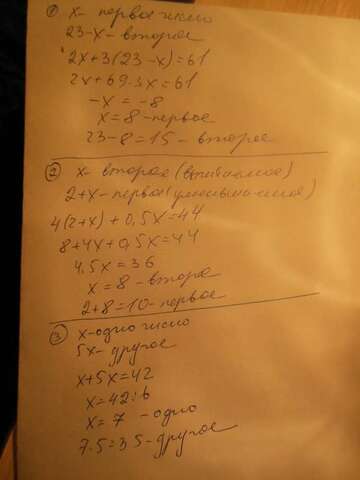 ① x - первое число
23-x - второе
2x+3(23-x)=61
2x+69-3x=61
-x = -8
x=8 - первое
23-8=15 - второе
② x - второе (вычитаемое)
2+x - первое (уменьшаемое)
4(2+x)+0,5x=44
8+4x+0,5x=44
4,5x=36
x=8 - второе
2+8=10 - первое
③ x - одно число
5x - другое
x+5x=42
x=42:6
x=7 - одно
7·5=35 - другое